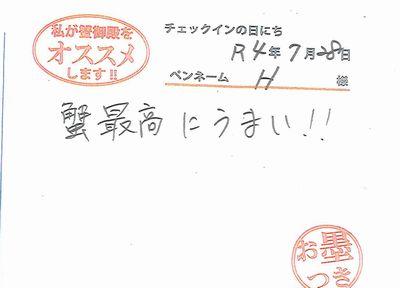 私が蟹御殿を
オススメ
します!!
チェックインの日にち
R4年7月28日
ペンネーム H 様
蟹最高にうまい!!
お墨
つき